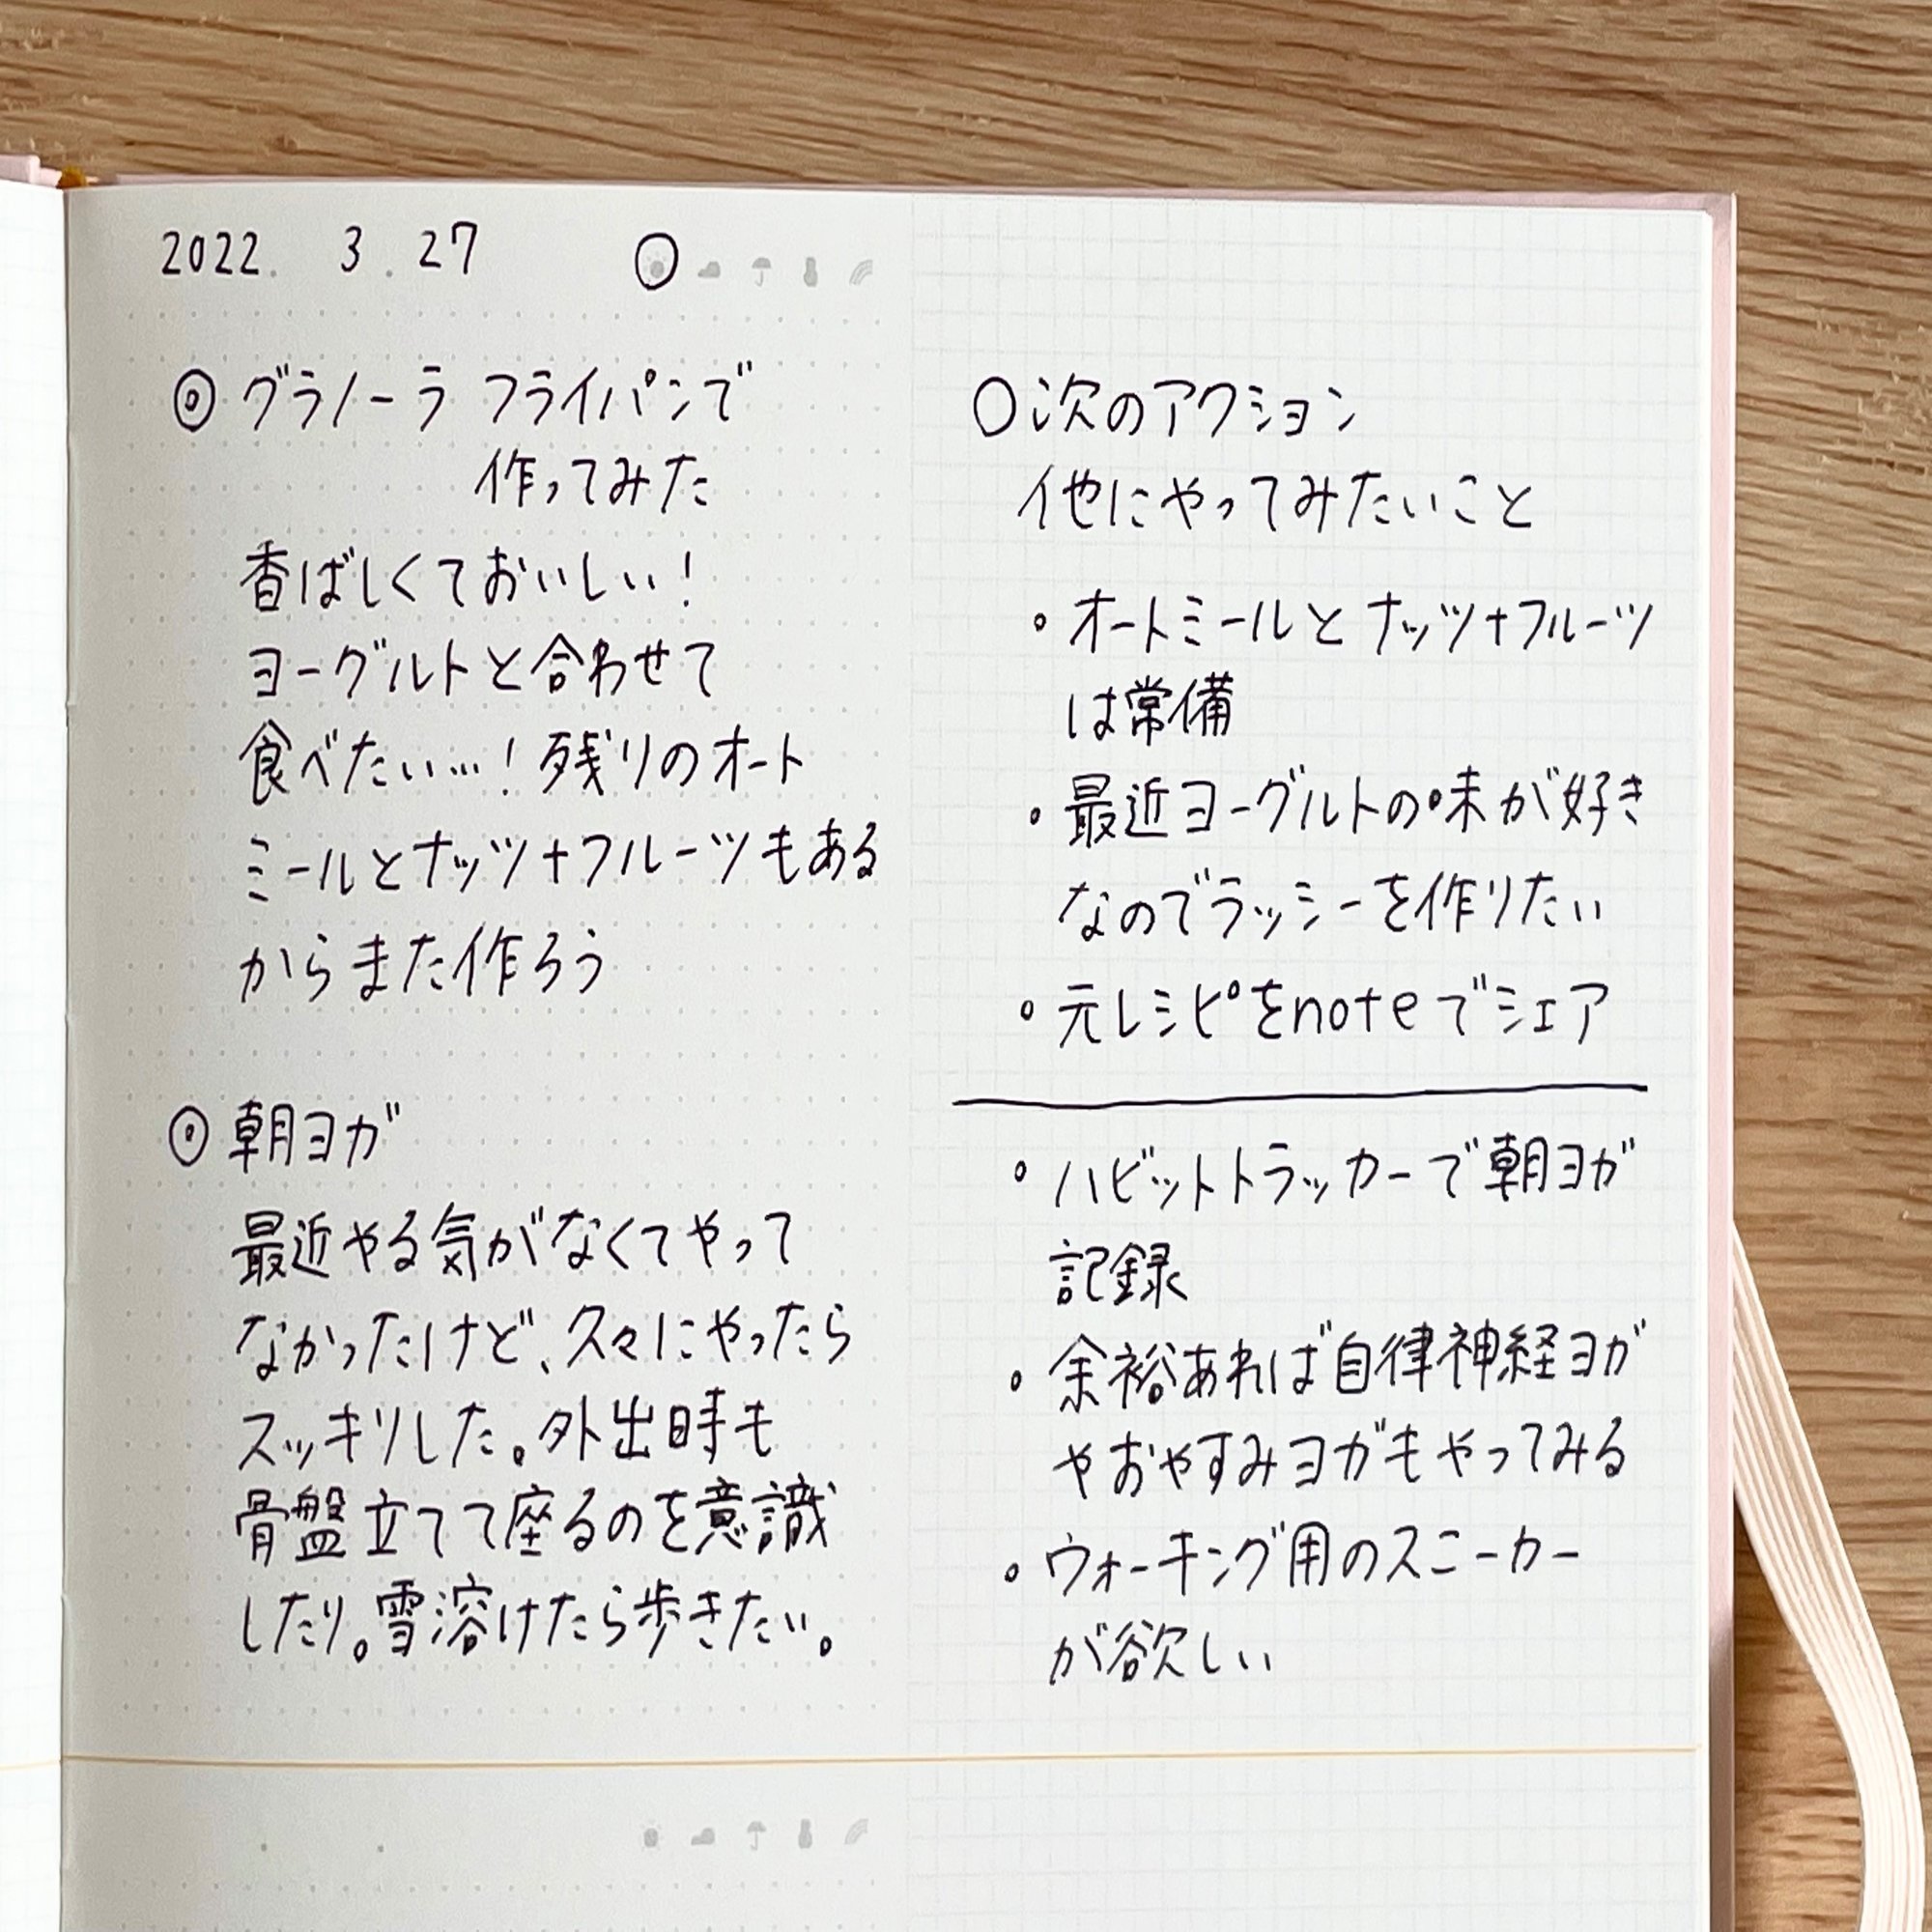 2022. 3. 27
◎ グラノーラ フライパンで
作ってみた
香ばしくておいしい!
ヨーグルトと合わせて
食べたい…! 残りのオート
ミールとナッツ+フルーツもある
からまた作ろう
◎ 朝ヨガ
最近やる気がなくてやって
なかったけど、久々にやったら
スッキリした。外出時も
骨盤立てて座るのを意識
したり。雪溶けたら歩きたい。
○次のアクション
他にやってみたいこと
・オートミールとナッツ+フルーツ
は常備
・最近ヨーグルトの味が好き
なのでラッシーを作りたい
・元レシピをnoteでシェア
・ハビットトラッカーで朝ヨガ
記録
・余裕あれば自律神経ヨガ
やおやすみヨガもやってみる
・ウォーキング用のスニーカー
が欲しい